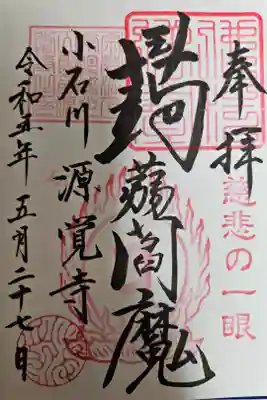 奉拝
慈悲の一眼
蒟蒻閻魔
小石川 源覚寺
令和五年五月二十七日